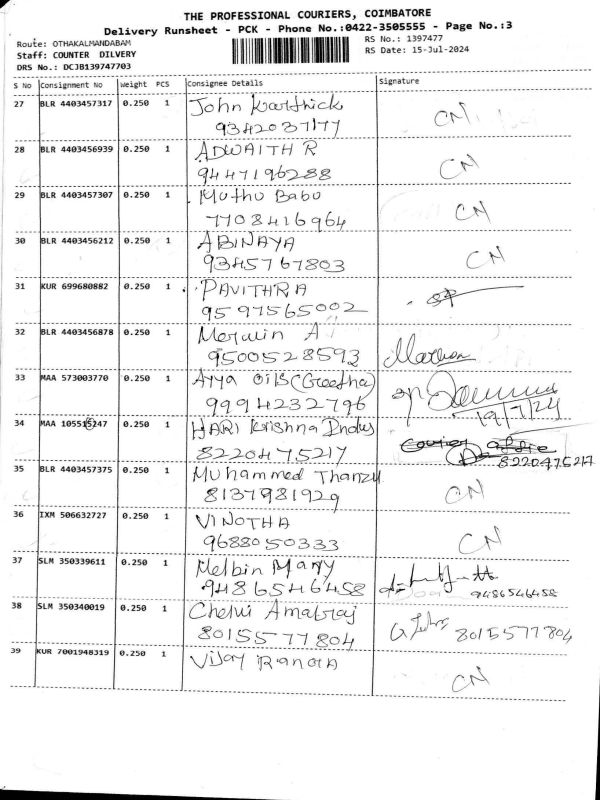 THE PROFESSIONAL COURIERS, COIMBATORE
Delivery Runsheet - PCK - Phone No.:0422-3505555 - Page No.:3
Route: OTHAKALMANDABAM
RS No.: 1397477
Staff: COUNTER DILVERY
RS Date: 15-Jul-2024
DRS No.: DCJB139747703
S No Consignment No Weight PCS Consignee Details Signature
27 BLR 4403457317 0.250 1 John Karthick CN
9342037177
28 BLR 4403456939 0.250 1 ADWAITH R CN
9447196288
29 BLR 4403457307 0.250 1 Muthu Babu CN
7708416964
30 BLR 4403456212 0.250 1 ABINAYA CN
9345767803
31 KUR 699680882 0.250 1 PAVITHRA
9597565002
32 BLR 4403456878 0.250 1 Merwin A
9500528593
33 MAA 573003770 0.250 1 Ayya oils (Geetha)
9994232796 19/7/24
34 MAA 105515247 0.250 1 HARI Krishna Indus
8220475217 8220475217
35 BLR 4403457375 0.250 1 Muhammed Thanzu CN
8137981929
36 IXM 506632727 0.250 1 VINOTHA CN
9688050333
37 SLM 350339611 0.250 1 Melbin Mary
9486546458 9486546458
38 SLM 350340019 0.250 1 Chelvi Amalraj
8015577804 8015577804
39 KUR 7001948319 0.250 1 Vijay CN